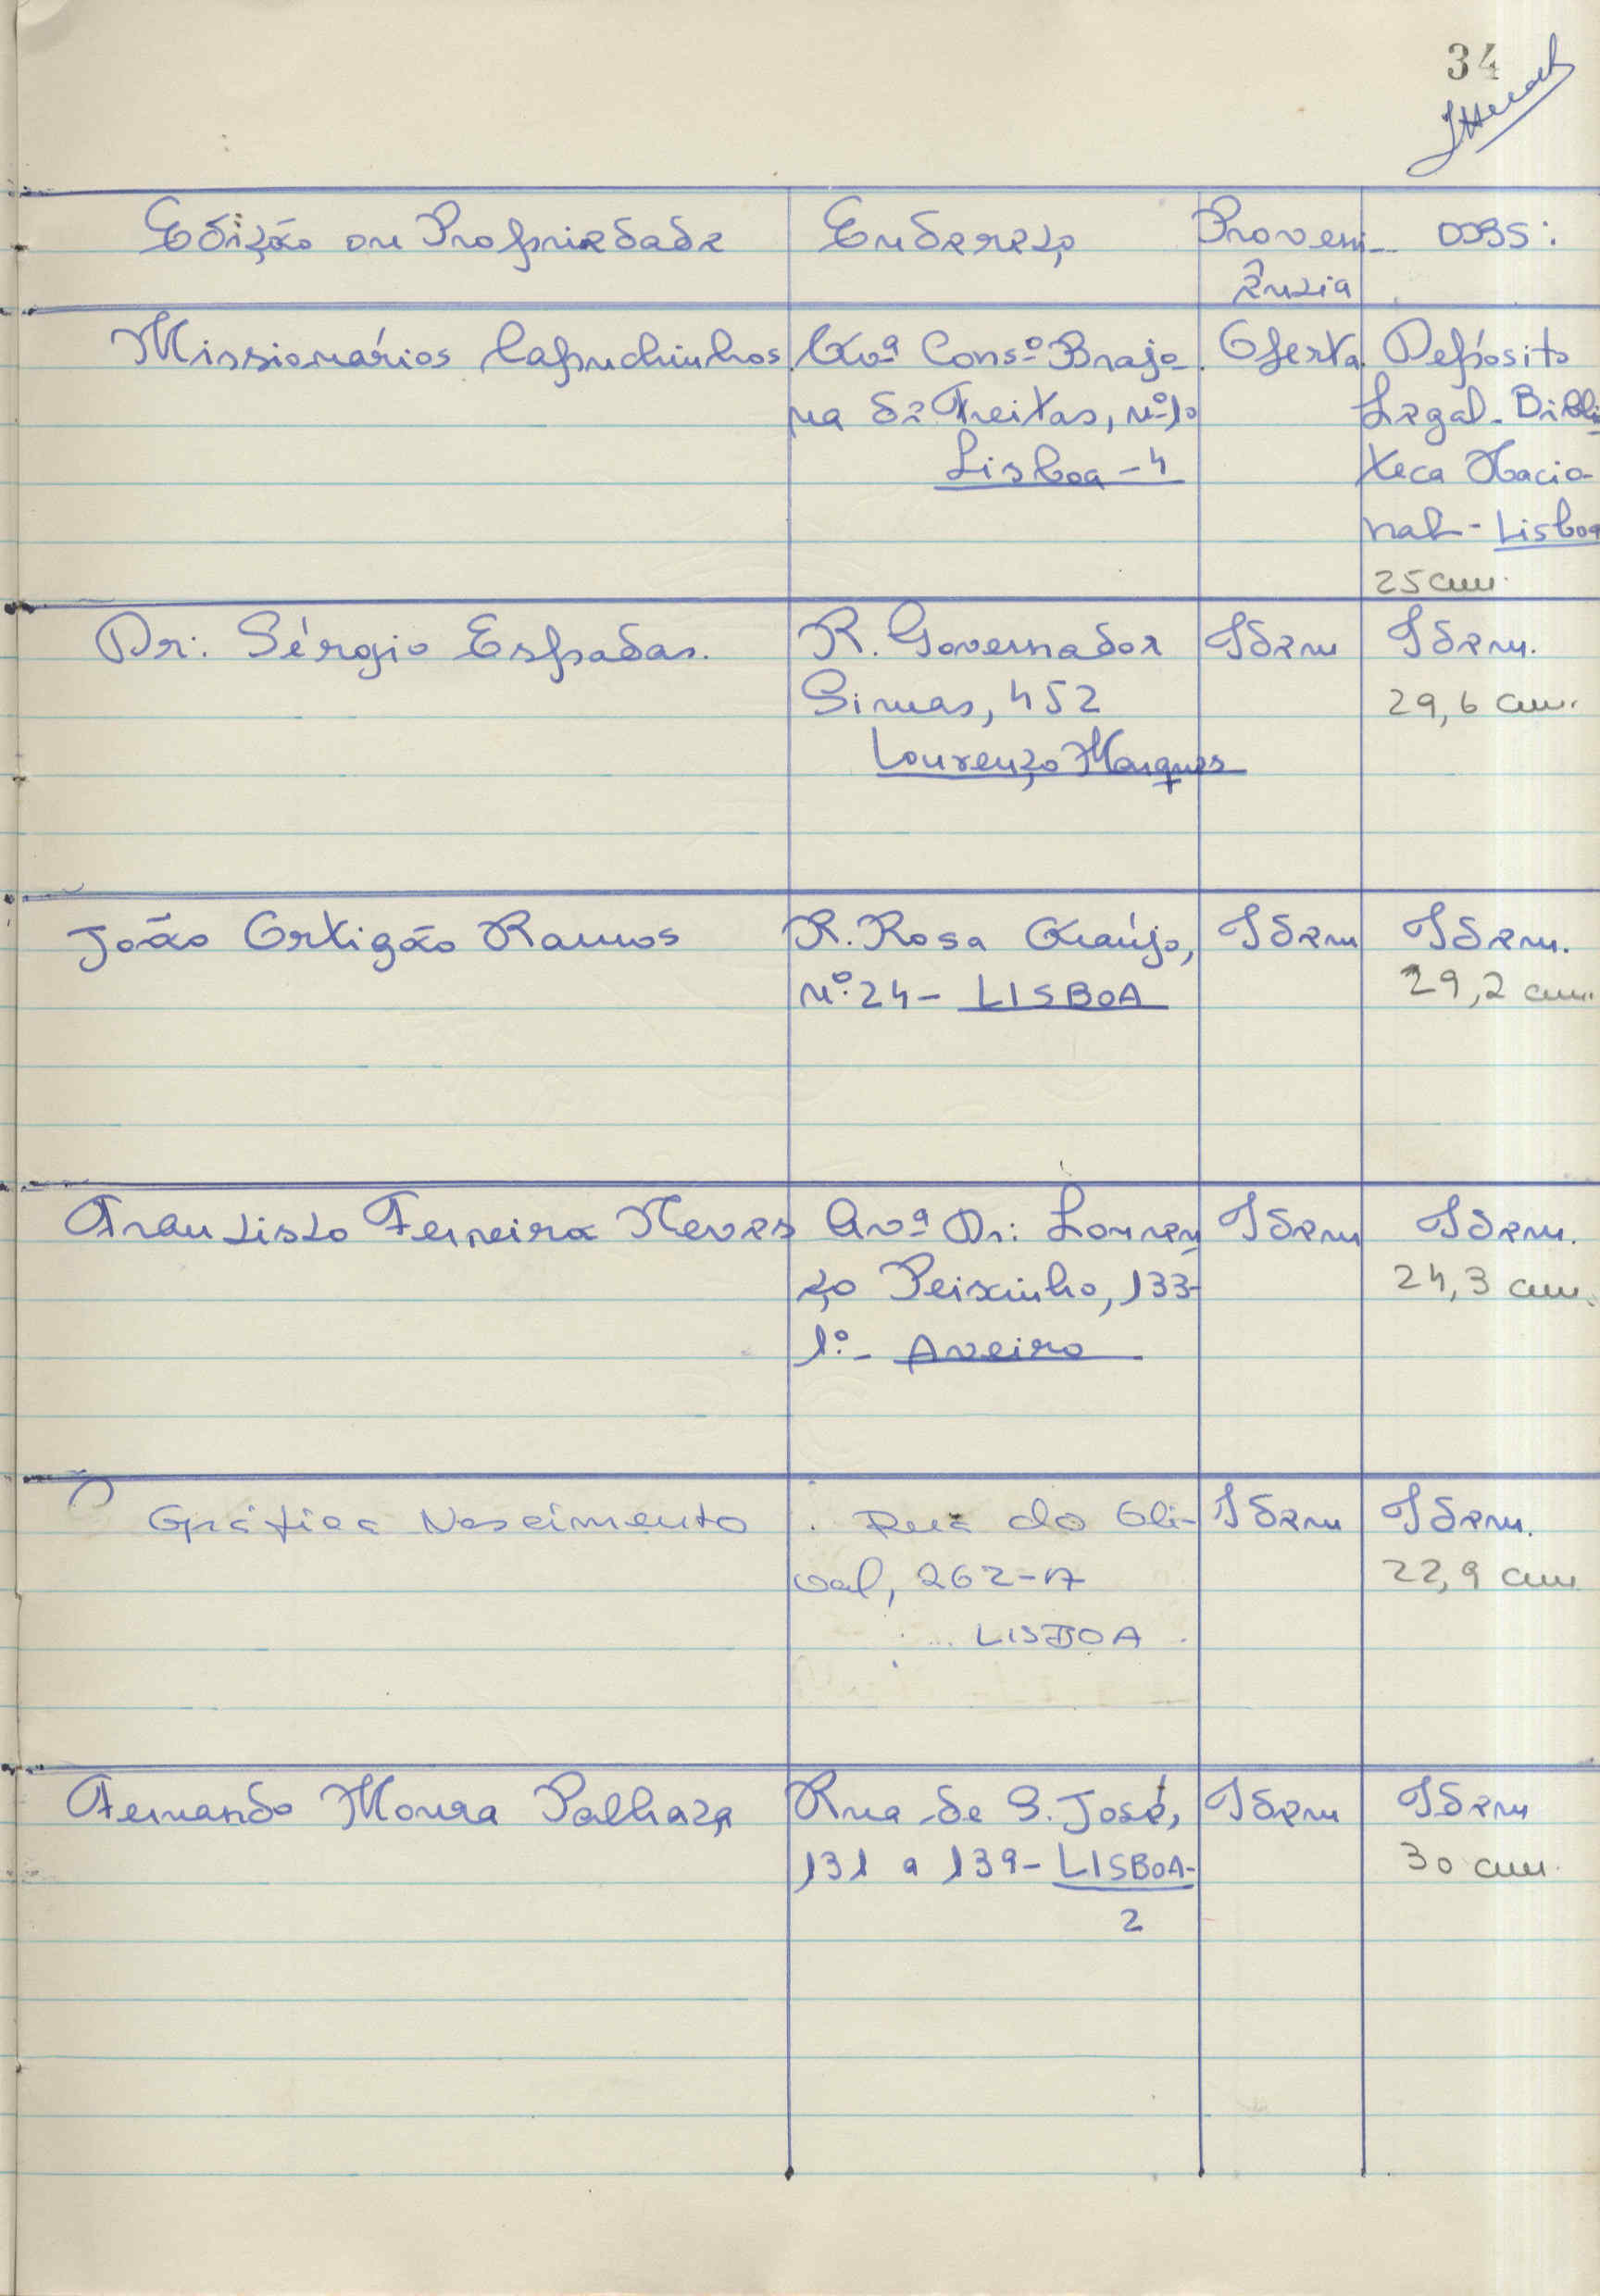 34
Edição ou Propriedade Endereço Proveni- OBS:
ência
Missionários Capuchinhos. Avª Consº Brajo- Oferta. Depósito
na de Freitas, nº 10 Legal. Biblio-
Lisboa - 4 teca Nacio-
nal - Lisboa
25 cm.
Dr: Sérgio Espadas. R. Governador Idem Idem.
Simas, 452 29,6 cm.
Lourenço Marques
João Ortigão Ramos R. Rosa Araújo, Idem Idem.
nº. 24 - LISBOA 29,2 cm.
Francisco Ferreira Neves Avª Dr: Louren- Idem Idem.
ço Peixinho, 133- 24,3 cm.
1º. - Aveiro
Gráfica Nascimento Rua do Oli- Idem Idem.
val, 262-A 22,9 cm
LISBOA
Fernando Moura Palhaça Rua de S. José, Idem Idem
131 a 139 - LISBOA- 30 cm.
2